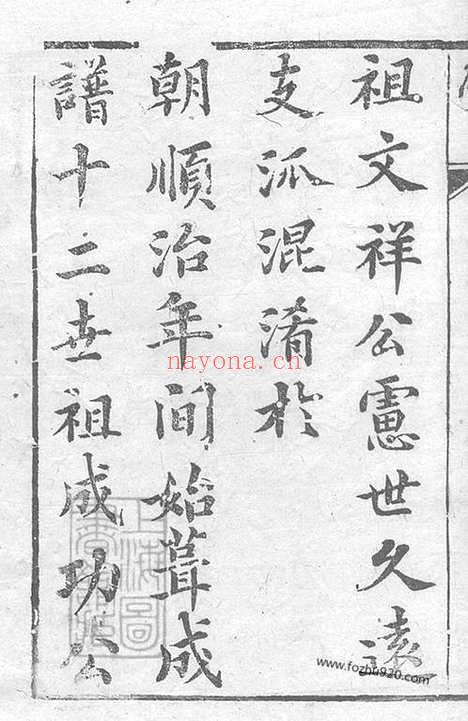 祖文祥公慮世久遠
支派混淆於
朝順治年間始葺成
譜十二世祖成功公
nayona.cn
www.fozhu920.com